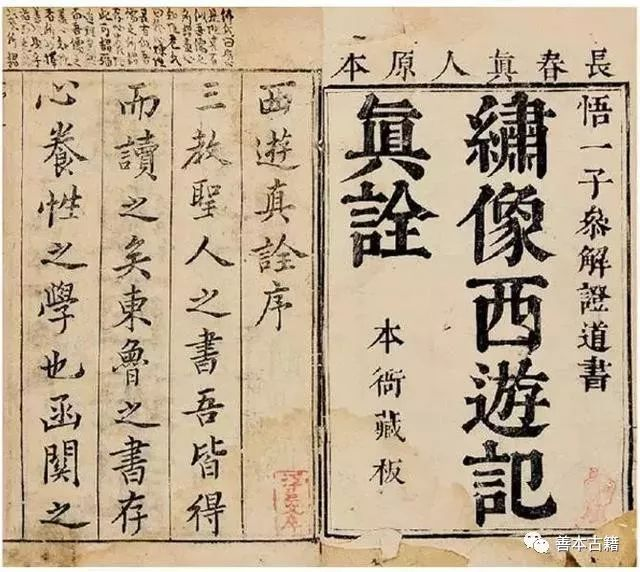 長春眞人原本
悟一子叅解證道書
繡像西遊記
眞詮
本衙藏板
西遊真詮序
三教聖人之書吾皆得
而讀之矣東魯之書存
心養性之學也函関之
善本古籍